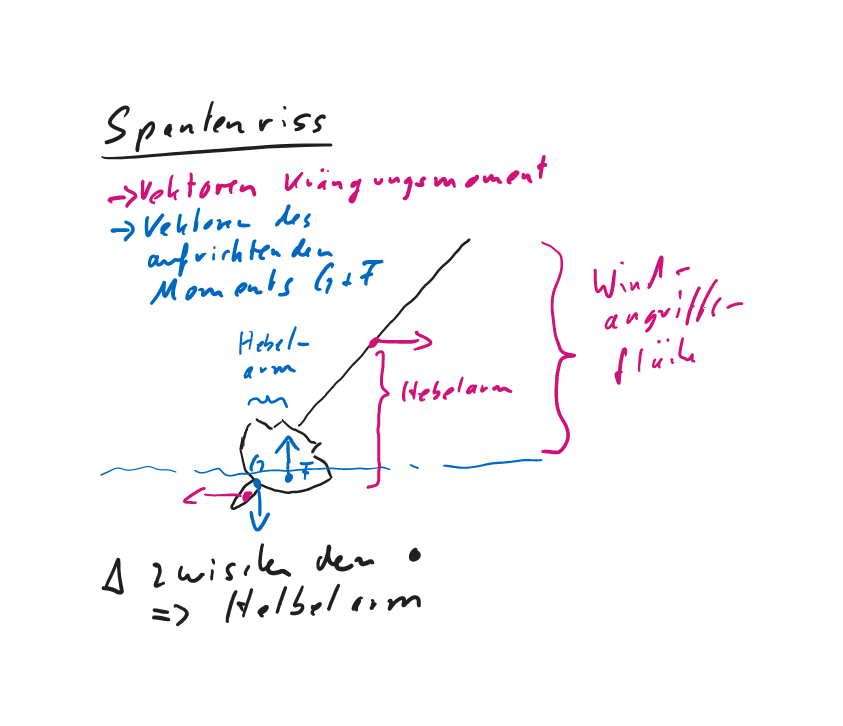 Spantenriss
→ Vektoren Krängungsmoment
→ Vektoren des
aufrichtenden
Moments G + F
Hebel-
arm
Wind-
angriffs-
fläche
Hebelarm
G
F
Δ zwischen den •
=> Helbelarm